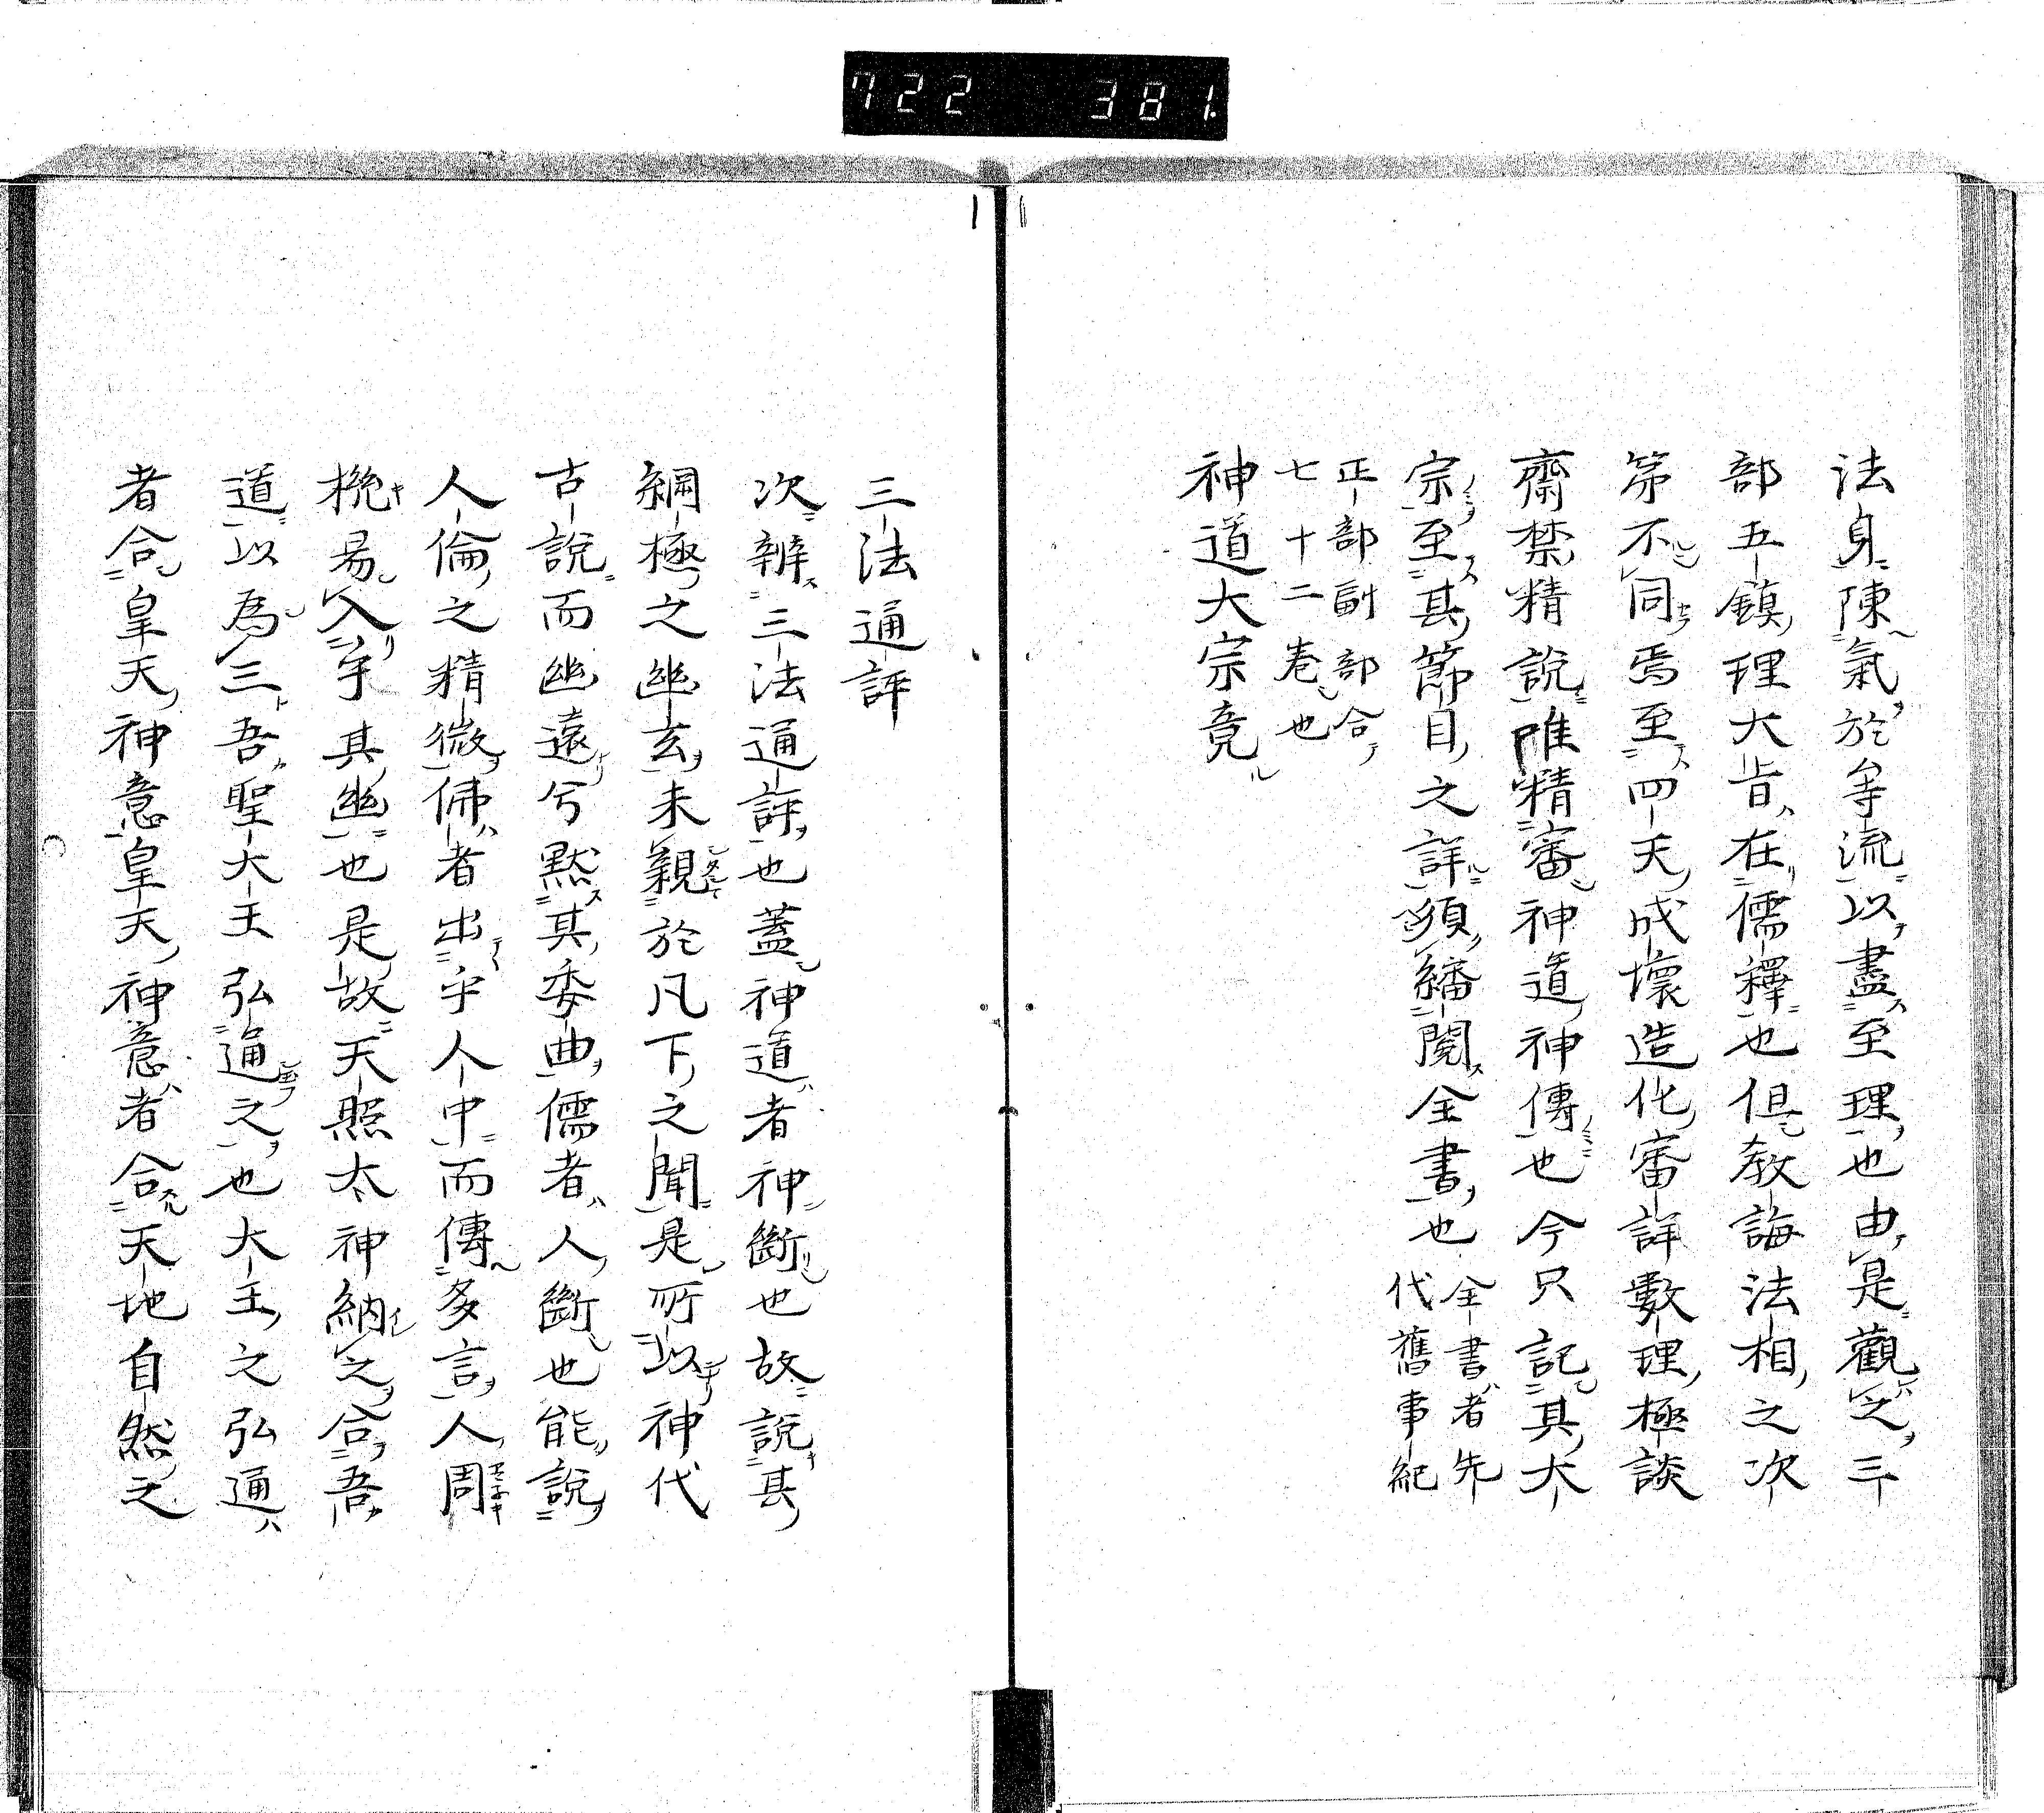 722 381
法身陳氣於等流以盡至理也由是觀之三
部五鎮理大旨在儒釋也但教誨法相之次
第不同焉至四天成壞造化審詳數理極談
齋禁精說唯精審神道神傳也今只記其大
宗至其節目之詳須繙閱全書也全書者先
代舊事紀
正部副部合
七十二卷也
神道大宗竟
三法通評
次辨三法通評也蓋神道者神斷也故說其
綱極之幽玄未親於凡下之聞是所以神代
古說而幽遠兮黙其委曲儒者人斷也能說
人倫之精微佛者出乎人中而傳多言人周
易入乎其幽也是故天照太神納之合吾
道以為三吾聖大王弘通之也大王之弘通
者合皇天神意皇天神意者合天地自然之